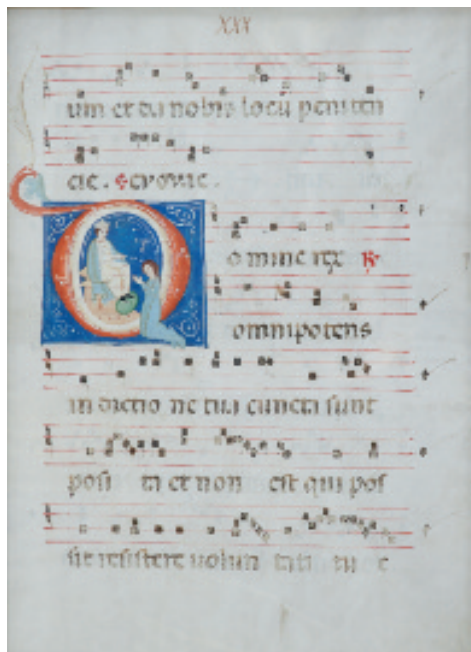 XXX
um et da nobis locu peniten
cie.
omine rex R
omnipotens
in dictio ne tua cuncti sunt
posi ti et non est qui pos
sit resistere uolun tati tu e